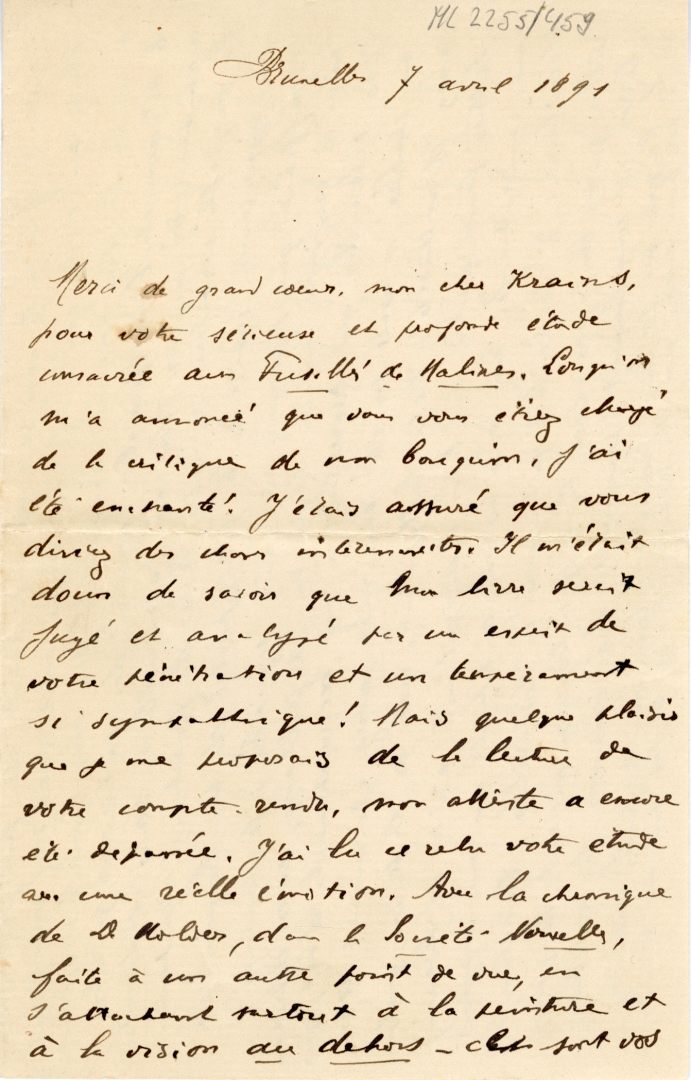 ML 2255/459
Bruxelles 7 avril 1891
Merci de grand cœur, mon cher Krains,
pour votre sérieuse et profonde étude
consacrée aux Fusillés de Malines. Lorsqu'on
m'a annoncé que vous vous étiez chargé
de la critique de mon bouquin, j'ai
été enchanté! J'étais assuré que vous
diriez des choses intéressantes. Il m'était
doux de savoir que mon livre serait
jugé et analysé par un esprit de
votre pénétration et un tempérament
si sympathique! Mais quelque plaisir
que je me proposais de la lecture de
votre compte-rendu, mon attente a encore
été dépassée. J'ai lu et relu votre étude
avec une réelle émotion. Avec la chronique
de D Molder, dans la Société Nouvelle,
faite à un autre point de vue, en
s'attachant surtout à la peinture et
à la vision au dehors – sont vos